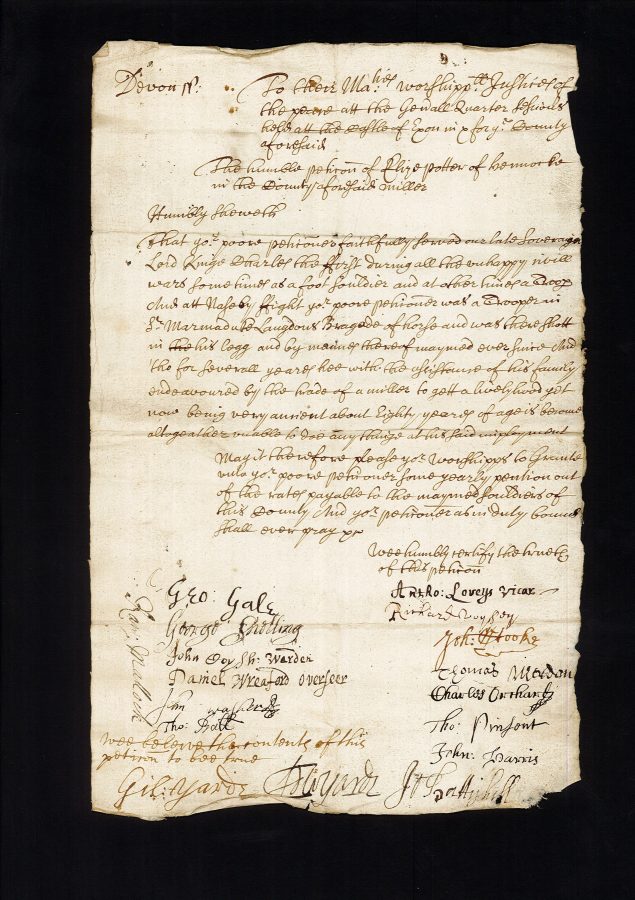 Devon ss:
To their Ma:ties worshipp:ll Justices of
the peace att the Gen'all Quarter Sessions
held att the Castle of Exon in & for ye County
aforesaid
The humble peticon of Elize Potter of Hennocke
in the County aforesaid miller
Humbly Sheweth
That yor: poore petitioner faithfully served our late Soveraigne
Lord Kinge Charles the ffirst during all the unhappy civill
wars some times as a foot souldier and at other times a Troop
And att Naseby ffight yor: poore petitioner was a Trooper in
Sr: Marmaduke Langdons Bragade of horse and was there shott
in the his legg and by meanes thereof maymed ever since And
tho for severall yeares hee with the assistance of his family
endeavoured by the trade of a miller to gett a livelyhood yet
now being very ancient about Eighty yeares of age is become
altogeather unable to doe any thinge at his said imployment
May it therefore please yor: Worshipps to Grante
unto yor: poore petitioner some yearly pention out
of the rates payable to the maymed souldiers of
this County And yor: petitioner as in duty bound
shall ever pray &c
Wee humbly certify the trueth
of this peticon
Geo: Gale
George
John Warden
Daniel Wreaford overseer
Jon
Tho: Ball
Ray: Mallock
Antho: Loveys vicar
Richard Voysey
Joh: Stooke
Thomas
Charles Orchard
Tho: Pinsent
John: Harris
wee beleive the contents of this
petition to bee true
Gil: Yarde Yarde Jo